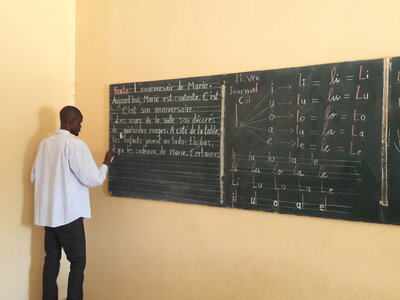 Texte: L'anniversaire de Marie.
Aujourd'hui, Marie est contente. C'est
C'est son anniversaire.
Les murs de la salle son décorés
de guirlandes rouges. A côté de la table,
les enfants jouent au tam-tam,
il y a les cadeaux de Marie. Certaines
li.vre
Journal
Cd
l
i → li = li = Li
u → lu = lu = Lu
o → lo = lo = Lo
a → la = la = La
e → le = le = Le
li lu lo la le
li lu lo la le
Li Lu Lo La Le
il ul ol al el